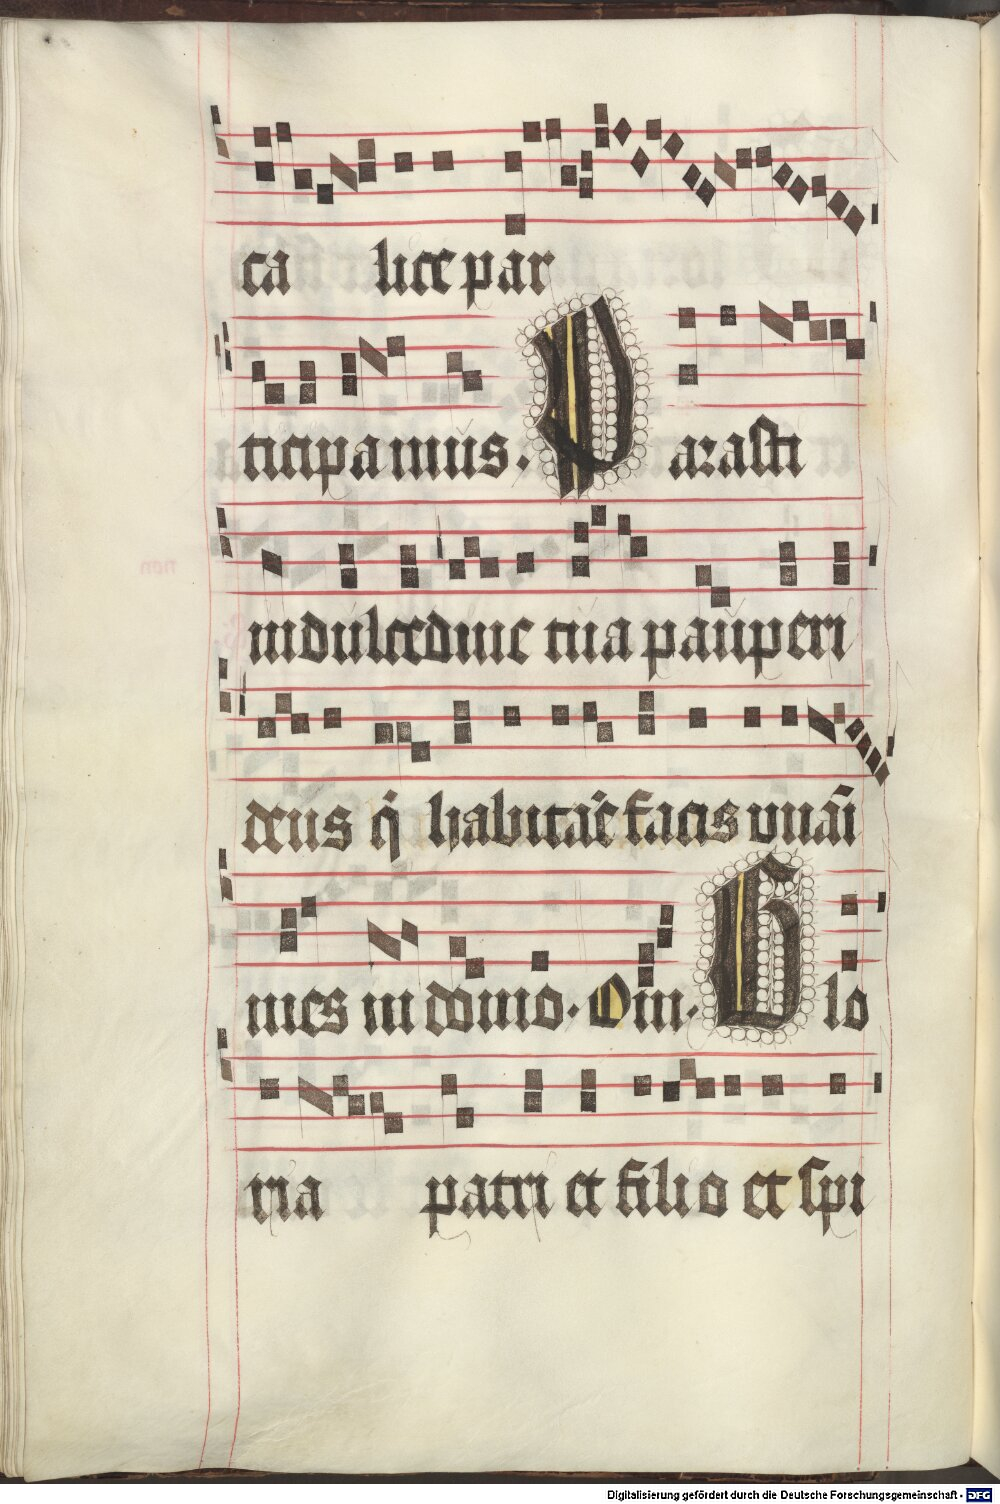 ca lice par
ticipamus. Parasti
in dulcedine tua pauperi
deus q̄ habitar̄e facis vnāi
mes in domo. Om̄. Glo
ria patri et filio et spi
Digitalisierung gefördert durch die Deutsche Forschungsgemeinschaft - DFG